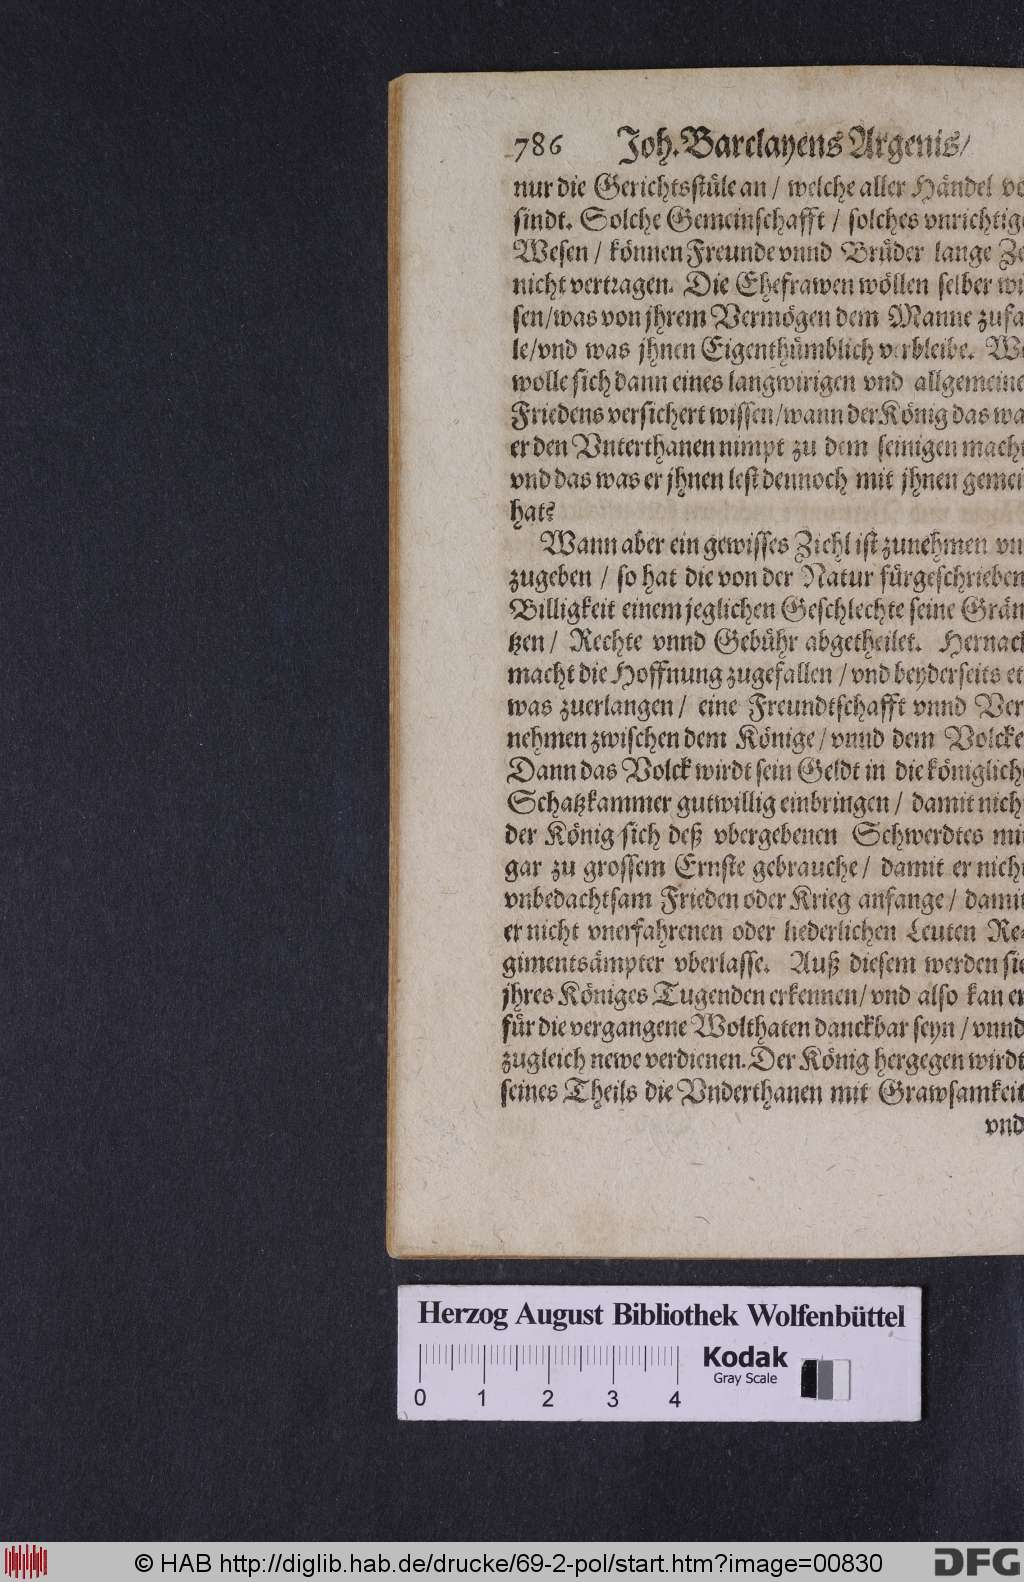 786 Joh. Barclayens Argenis/
nur die Gerichtsstüle an / welche aller Händel vo
sindt. Solche Gemeinschafft / solches vnrichtige
Wesen / können Freunde vnnd Brüder lange Ze
nicht vertragen. Die Ehefrawen wöllen selber wi
sen/was von jhrem Vermögen dem Manne zufa
le/vnd was jhnen Eigenthümblich verbleibe. We
wolle sich dann eines langwirigen vnd allgemeine
Friedens versichert wissen/wann der König das wa
er den Vnterthanen nimpt zu dem seinigen macht
vnd das was er jhnen lest dennoch mit jhnen gemei
hat?
Wann aber ein gewisses Ziehl ist zunehmen vn
zugeben / so hat die von der Natur fürgeschrieben
Billigkeit einem jeglichen Geschlechte seine Grän
tzen / Rechte vnnd Gebühr abgetheilet. Hernach
macht die Hoffnung zugefallen / vnd beyderseits et
was zuerlangen / eine Freundtschafft vnnd Ver
nehmen zwischen dem Könige / vnnd dem Volcke
Dann das Volck wirdt sein Geldt in die königliche
Schatzkammer gutwillig einbringen / damit nich
der König sich deß vbergebenen Schwerdtes mit
gar zu grossem Ernste gebrauche / damit er nicht
vnbedachtsam Frieden oder Krieg anfange / damit
er nicht vnerfahrenen oder liederlichen Leuten Re-
gimentsämpter vberlasse. Auß diesem werden sie
jhres Königes Tugenden erkennen/ vnd also kan er
für die vergangene Wolthaten danckbar seyn / vnnd
zugleich newe verdienen. Der König hergegen wirdt
seines Theils die Vnderthanen mit Grawsamkeit
vnd
Herzog August Bibliothek Wolfenbüttel
Kodak
Gray Scale
0 1 2 3 4
© HAB http://diglib.hab.de/drucke/69-2-pol/start.htm?image=00830
DFG